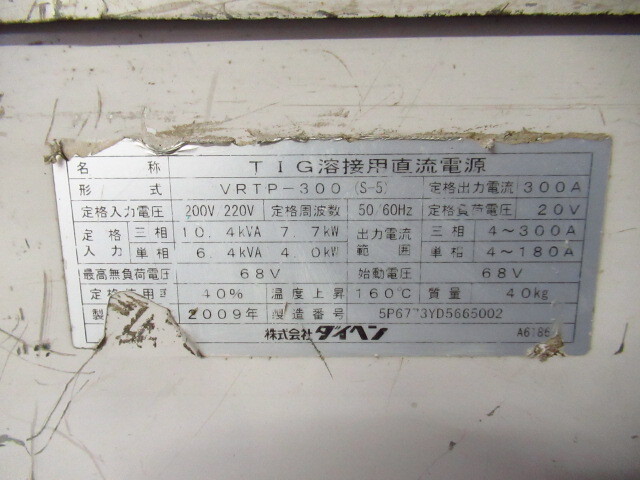 名 称 TIG溶接用直流電源
形 式 VRTP-300 (S-5) 定格出力電流 300A
定格入力電圧 200V 220V 定格周波数 50/60Hz 定格負荷電圧 20V
定格入力 三相 10.4kVA 7.7kW 出力電流範囲 三相 4~300A
単相 6.4kVA 4.0kW 単相 4~180A
最高無負荷電圧 68V 始動電圧 68V
定格使用率 40% 温度上昇 160℃ 質量 40kg
製 2009年 製造番号 5P6773YD5665002
株式会社ダイヘン